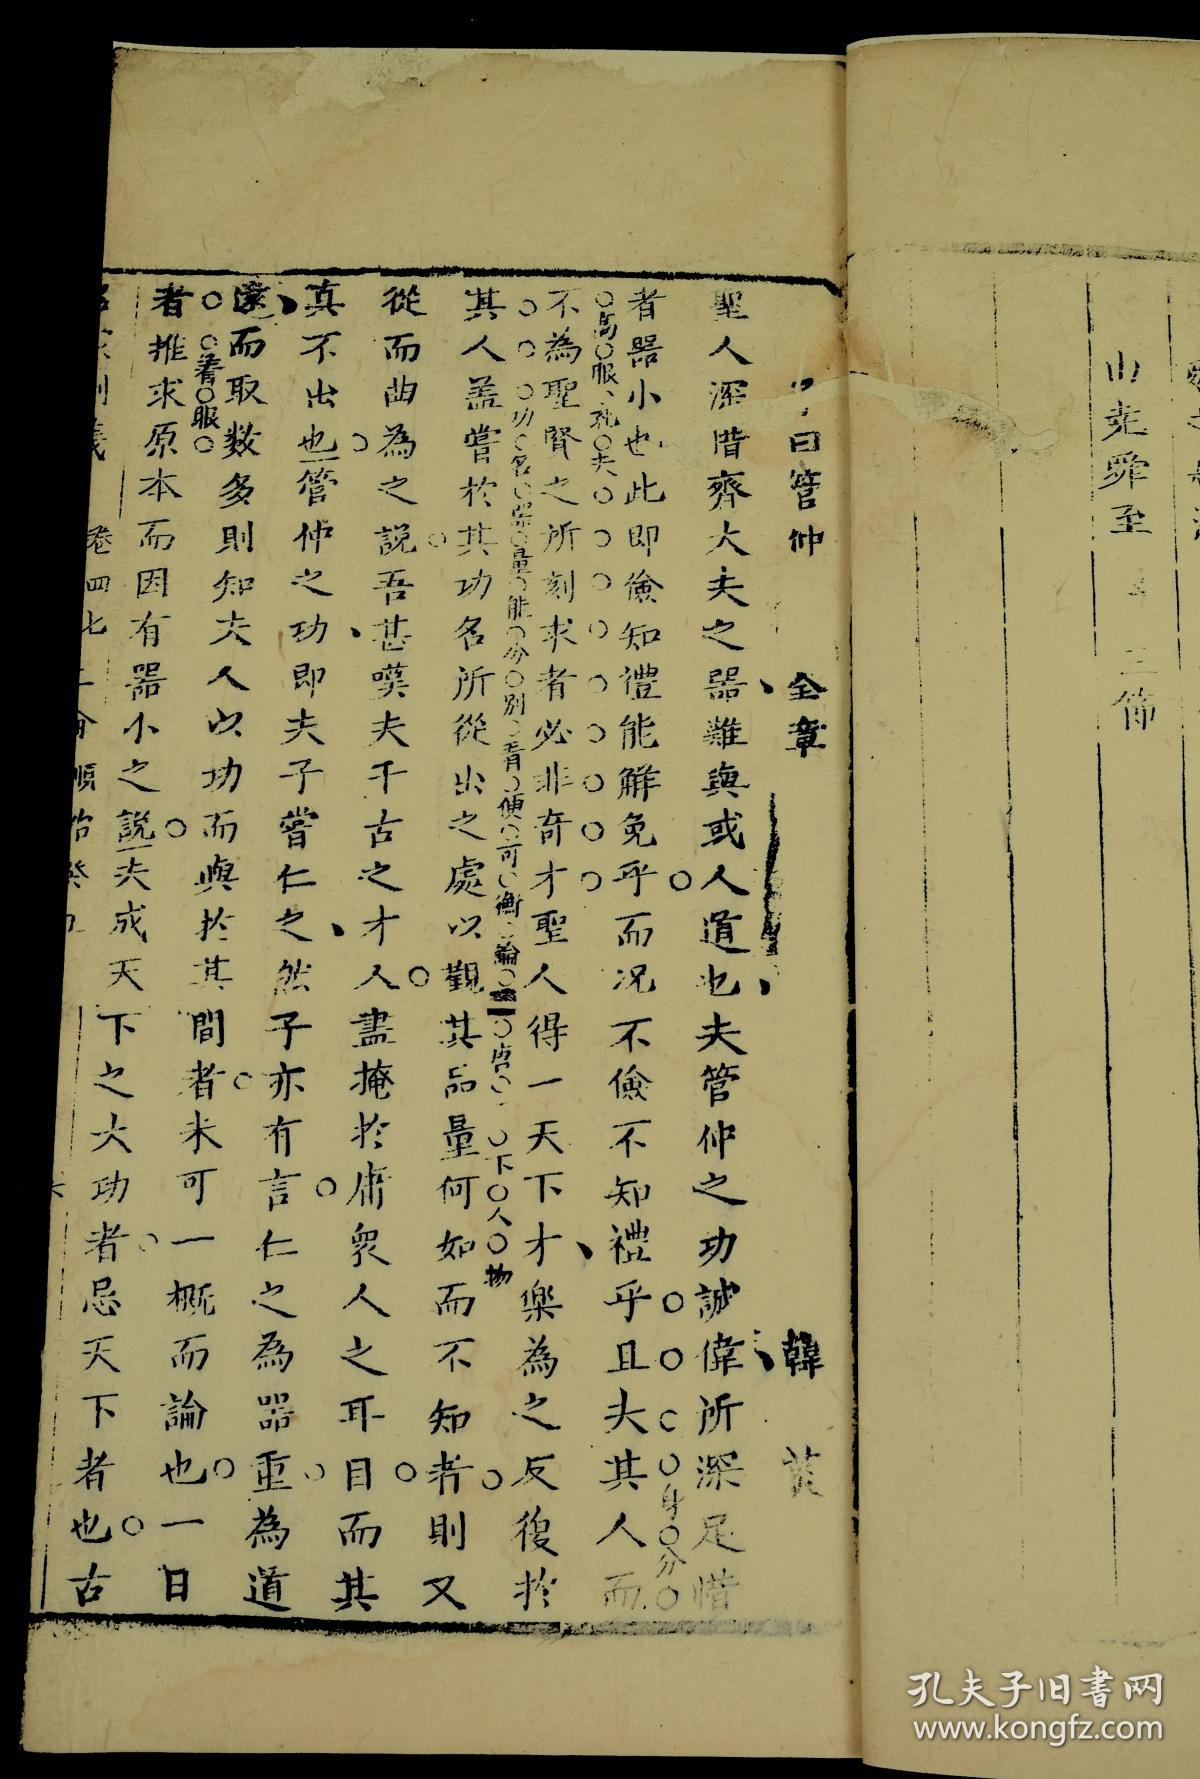 由堯舜至
曰管仲 全章 韓
聖人深惜齊大夫之器難與或人道也夫管仲之功誠偉所深足惜
者器小也此即儉知禮能解免乎而况不儉不知禮乎且夫其人而
不為聖賢之所刻求者必非奇才聖人得一天下才樂為之反復於
其人蓋嘗於其功名所從出之處以觀其品量何如而不知者則又
從而曲為之說吾甚嘆夫千古之才人盡掩於庸衆人之耳目而其
真不出也管仲之功即夫子嘗仁之然子亦有言仁之為器重為道
遠而取数多則知夫人以功而與於其間者未可一概而論也一日
者推求原本而因有器小之說夫成天下之大功者忌天下者也古
卷四七
孔夫子旧书网
www.kongfz.com